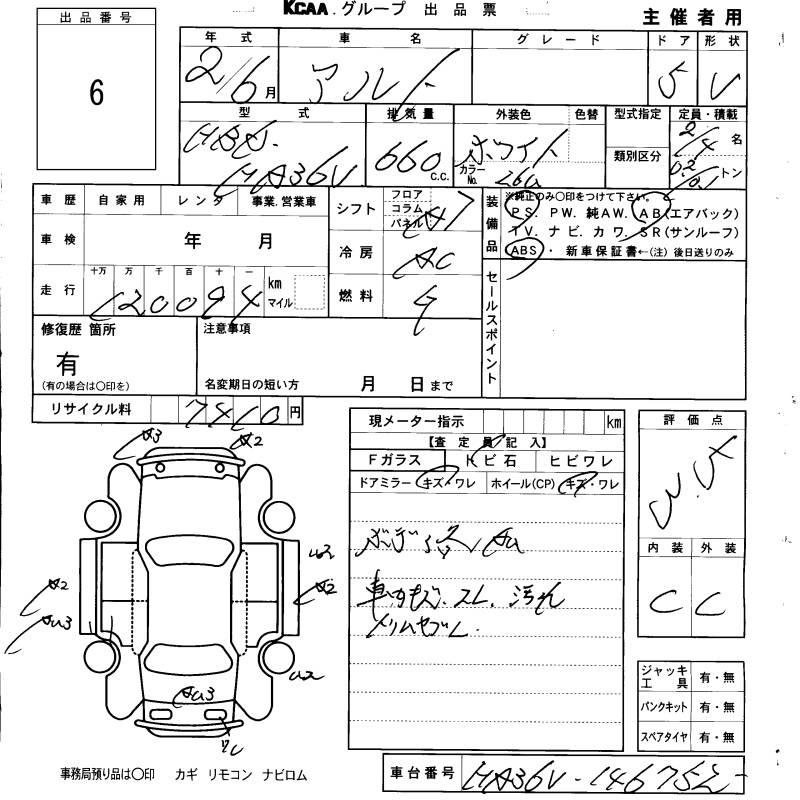 KCAA グループ 出品票
主催者用
出品番号
6
年式 車名 グレード ドア 形状
29/6月 アルト 5 V
型式 排気量 外装色 色替 型式指定 定員・積載
HBD-
HA36V
660 C.C.
ホワイト
カラーNo. 26U
類別区分
2/4 名
0.2/0.1 トン
車歴 自家用 レンタ 事業.営業車
車検 年 月
走行 十万 万 千 百 十 一
120094 km マイル
シフト フロア コラム パネル
冷房 AC
燃料
装備品
※純正のみ〇印をつけて下さい。
PS. PW. 純AW. AB(エアバック)
TV. ナビ. カワ. SR(サンルーフ)
ABS・ 新車保証書←(注)後日送りのみ
セールスポイント
修復歴 箇所
有
(有の場合は〇印を)
注意事項
名変期日の短い方 月 日まで
リサイクル料 7410円
現メーター指示 km
【査定員記入】
Fガラス トビ石 ヒビワレ
ドアミラー キズ・ワレ ホイール(CP) キズ・ワレ
車内キズ、スレ、汚れ
評価点
内装 外装
C C
ジャッキ工具 有・無
パンクキット 有・無
スペアタイヤ 有・無
A3 A2
U2
A2 A2
AU3
U2
AU3
事務局預り品は〇印 カギ リモコン ナビロム
車台番号 HA36V-146752-